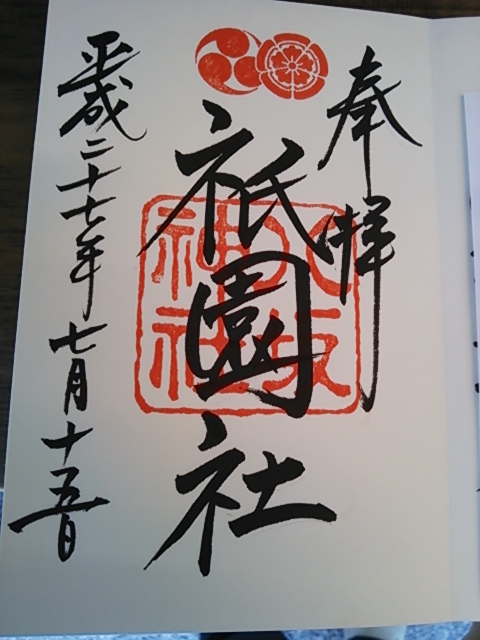 奉拝
八坂
神社
祇園社
平成二十七年七月十五日